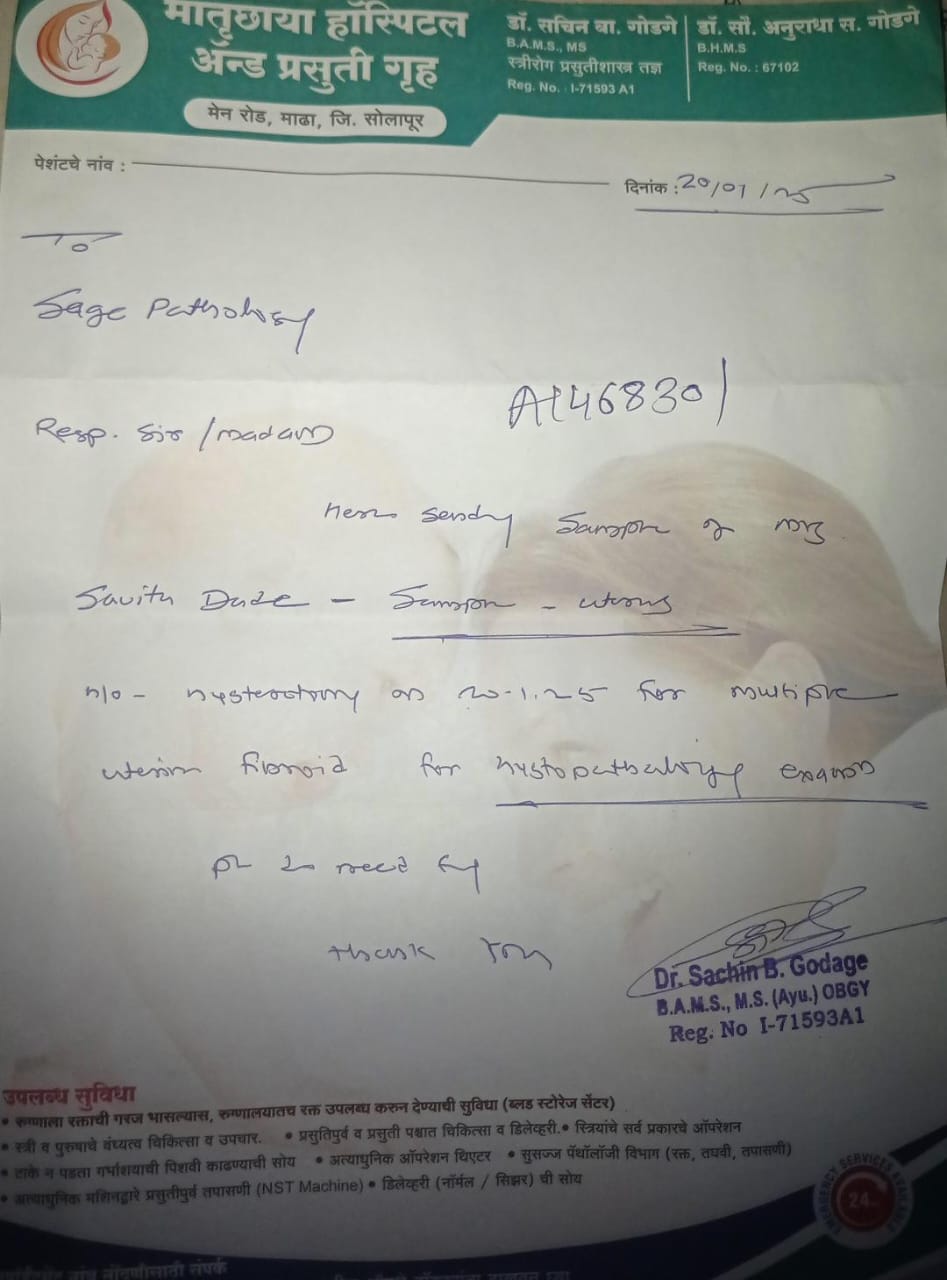 मातृछाया हॉस्पिटल
ॲन्ड प्रसुती गृह
मेन रोड, माढा, जि. सोलापूर
डॉ. सचिन बा. गोडगे
B.A.M.S., MS
स्त्रीरोग प्रसुतीशास्त्र तज्ञ
Reg. No. : I-71593 A1
डॉ. सौ. अनुराधा स. गोडगे
B.H.M.S
Reg. No. : 67102
पेशंटचे नांव :
दिनांक : 20/01/25
To
Sage Pathology
A1468301
Resp. Sir /madam
Here sending Sample of
Savita - Sample - uterus
H/o - on 20-1.25 for multiple
uterine fibroid for
Thank You
Dr. Sachin B. Godage
B.A.M.S., M.S. (Ayu.) OBGY
Reg. No I-71593A1
उपलब्ध सुविधा
• रुग्णाला रक्ताची गरज भासल्यास, रुग्णालयातच रक्त उपलब्ध करुन देण्याची सुविधा (ब्लड स्टोरेज सेंटर)
• स्त्री व पुरुषाचे वंध्यत्व चिकित्सा व उपचार. • प्रसुतिपुर्व व प्रसुती पश्चात चिकित्सा व डिलेव्हरी. • स्त्रियांचे सर्व प्रकारचे ऑपरेशन
• टाके न पडता गर्भाशयाची पिशवी काढण्याची सोय • अत्याधुनिक ऑपरेशन थिएटर • सुसज्ज पॅथॉलॉजी विभाग (रक्त, लघवी, तपासणी)
• अत्याधुनिक मशिनद्वारे प्रसुतीपुर्व तपासणी (NST Machine) • डिलेव्हरी (नॉर्मल / सिझर) ची सोय
24